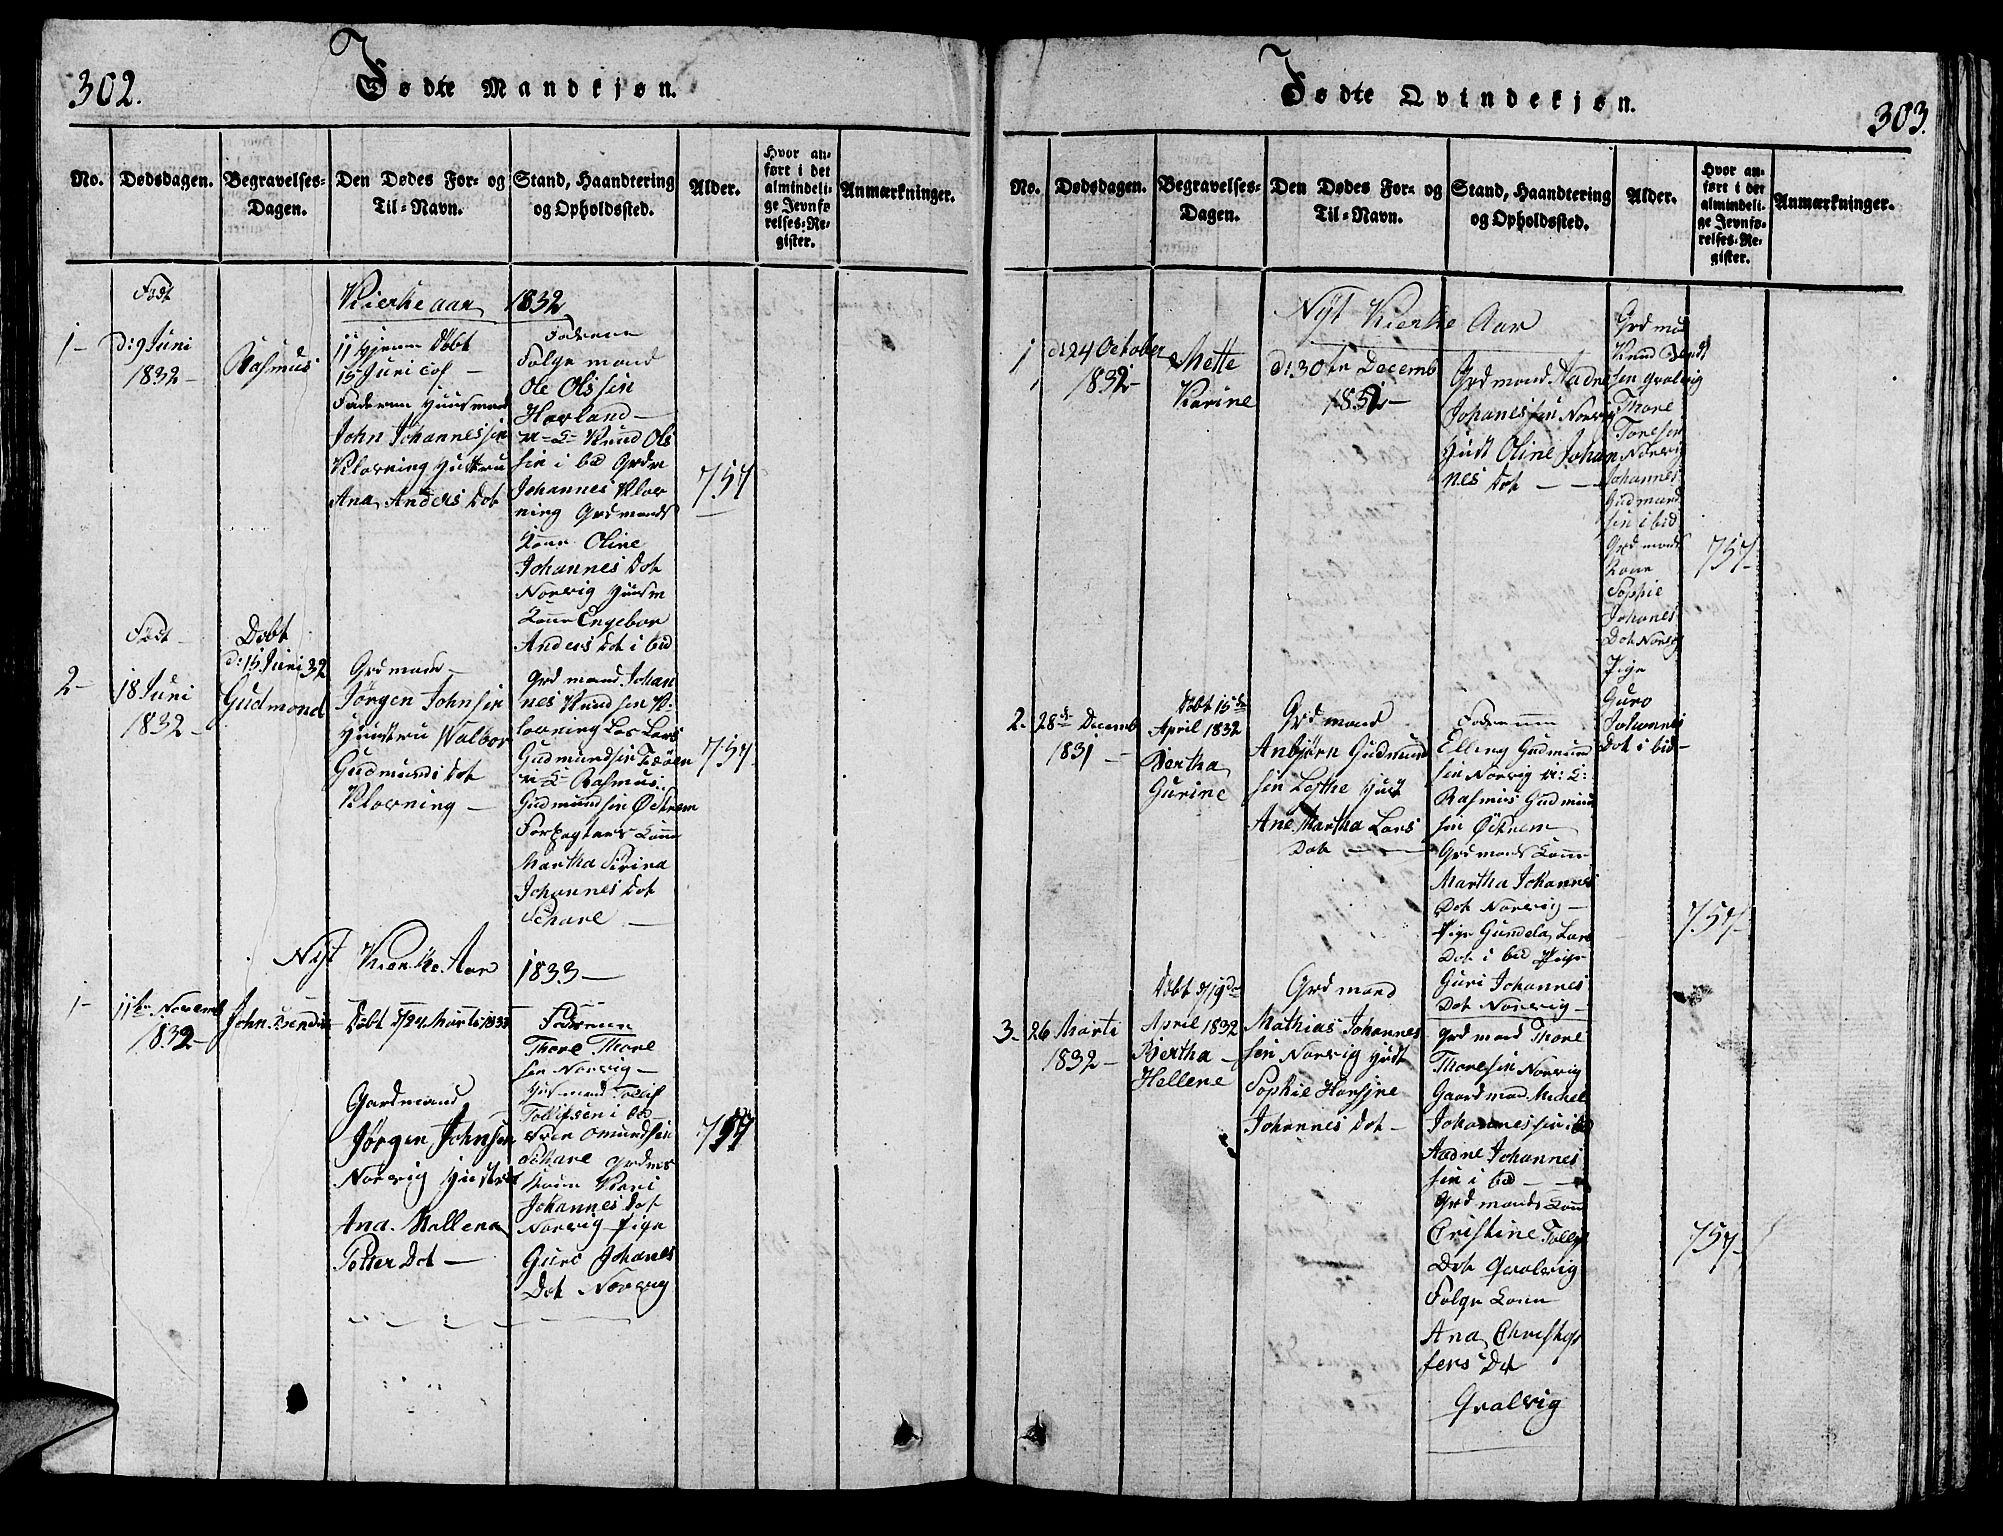 302.
Fødte Mandkjøn.
No.
Dødsdagen.
Begravelses-
Dagen.
Den Dødes For- og
Til-Navn.
Stand, Haandtering
og Opholdssted.
Alder.
Hvor an-
ført i det
almindeli-
ge Jevnfø-
relses-Re-
gister.
Anmærkninger.
Født
Kierke aar 1832
1-
d: 9 Juni
1832-
Rasmus
11 Hjem Døbt
15 Juni
Faderen Huusmand
John Johannessen
Kloning Hustru
Ana Anders Dot
Faderen
Følge mand
Ole Olssen
Horland-
Knud Ols
sen i bd Grdm
Johannes Klov
ning Grdmands
Kone Oline
Johannes Dot
Norvig Huusm
Kone Engebor
Anders Dot i bd
757
Født
2-
18 Juni
1832-
Døbt
d: 15 Juni 32
Gudmond
Grdmand-
Jørgen Johnsen
Hustru Walbor
Gudmunds Dot
Klovning-
Grdmand Johan
nes Knudsen K-
lovning Lars
Gudmundsen
Rasmus
Gudmundsen Østrem
Forpagters Kone
Martha Sirina
Johannes Dot
Schare-
757
Nyt Kierke Aar 1833-
1-
11te Novemb
1832-
John Bendix
Døbt d/24 Marti 1833
Gardmand
Jørgen Johnsen
Norvig Hustru
Ana Mallena
Petter Dot-
Faderen
Thore Thore
sen Norvig-
Husmand Tollif
Tollifsen i bd
Sven Omundsen
Schare Grdms
Kone Kari
Johannes Dot
Norvig Pige
Guro Johanes
Dot Norvig
757
303.
Fødte Qvindekjøn.
No.
Dødsdagen.
Begravelses-
Dagen.
Den Dødes For- og
Til-Navn.
Stand, Haandtering
og Opholdssted.
Alder.
Hvor an-
ført i det
almindeli-
ge Jevnfø-
relses-Re-
gister.
Anmærkninger.
Nyt Kierke Aar
1
d: 24 October
1832-
Mette
Karine
d: 30te Decemb
1832-
Grdmand Aadne
Johanessen Norvig
Hust Oline Johan
nes Dot
Grdmd
Knud Bendt
sen Qvalvig
Thore
Toresen
Norvig
Johannes
Gudmund
sen i bd
Grdmands
Kone
Sophie
Johanes
Dot Norvig
Pige
Guro
Johannes
Dot i bd-
757-
2-
28de Decemb
1831-
Døbt 15de
April 1832
Bertha
Gurine
Grdmand
Anbjørn Gudmund
sen Lesthe Hust
Ane Martha Lars
Dot
Faderen
Elling Gudmund
sen Norvig
Rasmus Gudmund
sen Østrem
Grdmands Kone
Martha Johannes
Dot Norvig-
Pige Gundela Lars
Dot i bd Pige
Guri Johannes
Dot Norvig-
757-
3-
26 Marti
1832-
Døbt d/19de
April 1832
Bertha-
Hellene
Grdmand
Mathias Johannes
sen Norvig Hust
Sophie Hansine
Johannes Dot-
Grdmand Thore
Thoresen Norvig
Gaardmand Michel
Johannessen i bd
Aadne Johannes
sen i bd
Grdmands Kone
Cristine Tollfs
Dot Qvalvig
Følge Kone
Ana Christof
fers Dot
Qvalvig
757-